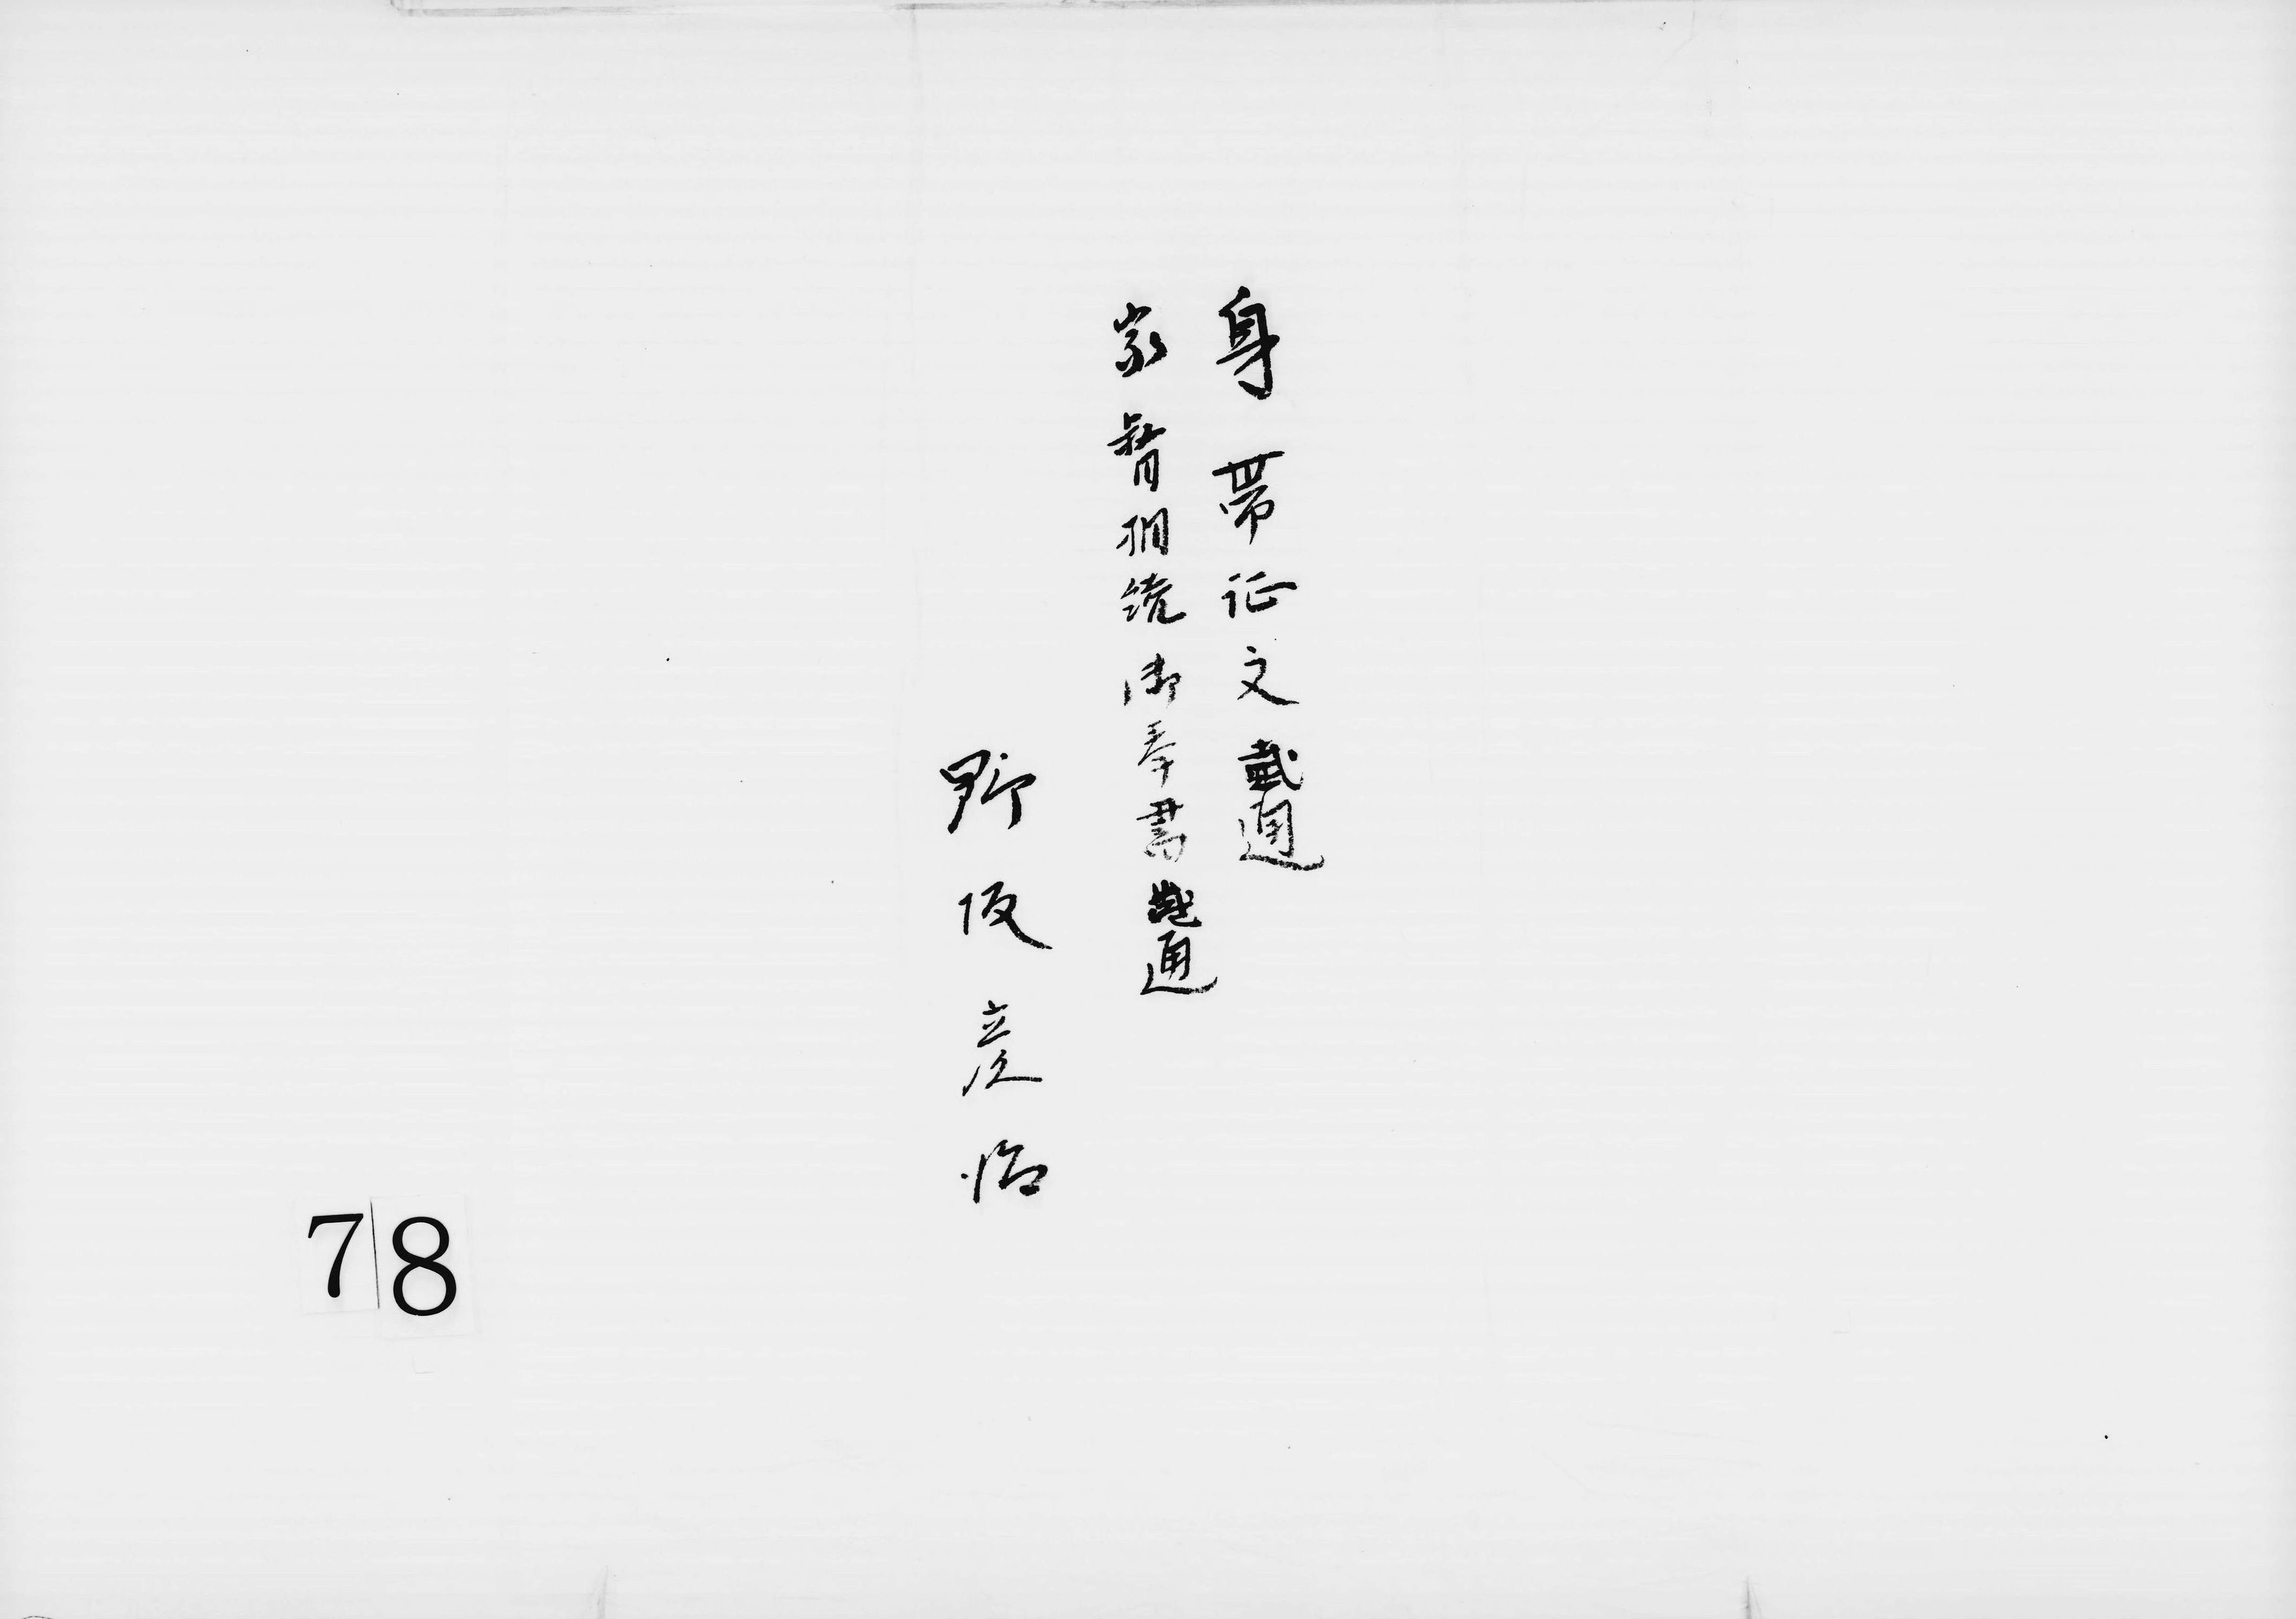 身帯証文貳通
家督相続御奉書壱通
野坂彦治
78